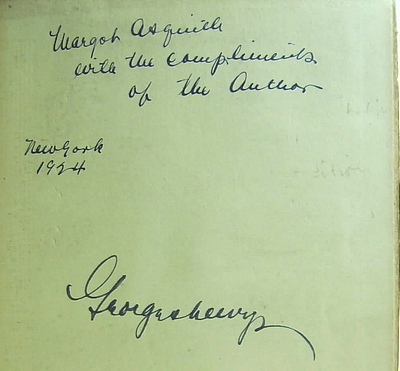 Margot Asquith
with the Compliments
of the Author
New York
1924